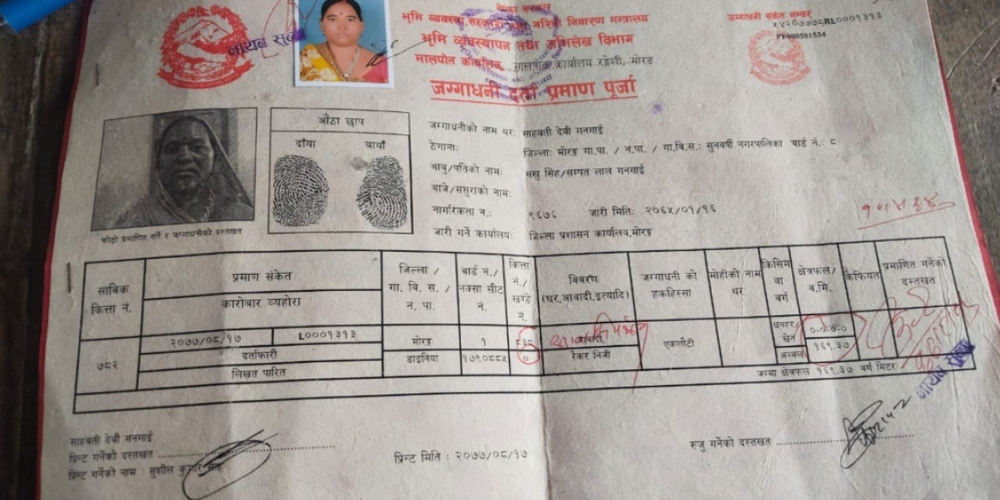 नेपाल सरकार
भूमि व्यवस्था, सहकारी तथा गरिबी निवारण मन्त्रालय
भूमि व्यवस्थापन तथा अभिलेख विभाग
मालपोत कार्यालय मालपोत कार्यालय रङ्गेली, मोरङ
जग्गाधनी दर्ता प्रमाण पूर्जा
जग्गाधनी संकेत नम्बर
RL0001313
नायब सुब्बा
औंठा छाप
दाँया बायाँ
जग्गाधनीको नाम थर: साहवती देवी गनगाई
ठेगाना: जिल्ला: मोरङ गा.पा. / न.पा. / गा.वि.स.: सुनवर्षी नगरपालिका वार्ड नं.: ८
बाबु/पतिको नाम: सिंह/सम्पत लाल गनगाई
बाजे/ससुराको नाम:
नागरिकता नं.: ९६७६ जारी मिति: २०६५/०१/१६
जारी गर्ने कार्यालय: जिल्ला प्रशासन कार्यालय,मोरङ
फोटो प्रमाणित गर्ने र जग्गाधनीको दस्तखत
साविक कित्ता नं.
प्रमाण संकेत
कारोबार व्यहोरा
जिल्ला / गा. वि. स. / न. पा.
वार्ड नं./ नक्सा सीट नं.
कित्ता नं./ खण्डे नं.
विवरण (घर,आवादी,इत्यादि)
जग्गाधनी को हकहिस्सा
मोहीको नाम थर
किसिम वा वर्ग
क्षेत्रफल/ व.मि.
कैफियत
प्रमाणित गर्नेको दस्तखत
७८२
२०७७/०८/१७ L0001313
दर्ताफारी
लिखत पारित
मोरङ
डाइनिया
१
०
रैकर निजी
एकलौटी
धनहर खेत
अब्बल
०-०-०-०
१६९.३७
जम्मा क्षेत्रफल १६९.३७ वर्ग मिटर
नायब सुब्बा
साहवती देवी गनगाई
प्रिन्ट गर्नेको दस्तखत
प्रिन्ट गर्नेको नाम : सुशील कुमार
प्रिन्ट मिति : २०७७/०८/१७
रुजु गर्नेको दस्तखत